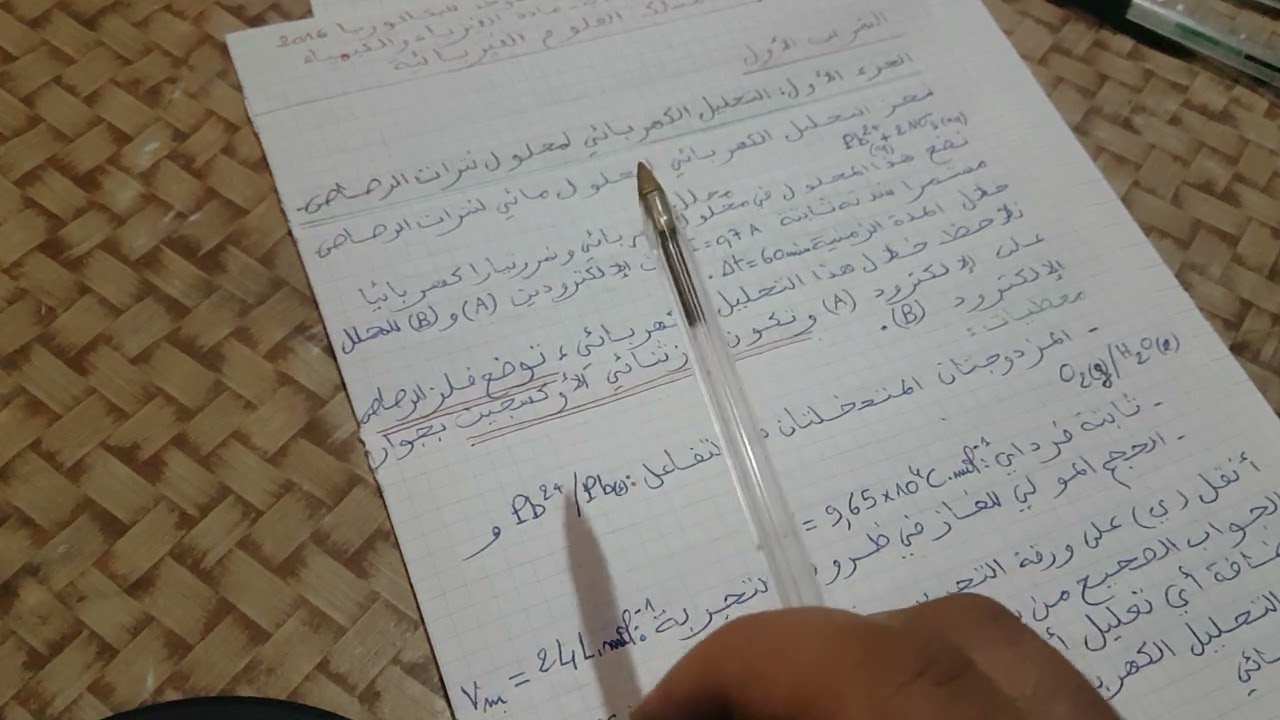 للبكالوريا 2016
مادة الفيزياء والكيمياء
مسلك العلوم الفيزيائية
التمرين الأول
الجزء الأول: التحليل الكهربائي لمحلول نترات الرصاص.
ننجز التحليل الكهربائي لمحلول مائي لنترات الرصاص
Pb²⁺(aq) + 2NO₃⁻(aq)
نضع هذا المحلول في محلل كهربائي ونمرر تيارا كهربائيا
مستمرا شدته ثابتة = 0,7A الإلكترودين (A) و (B) للمحلل
خلال المدة الزمنية Δt = 60min.
نلاحظ خلال هذا التحليل الكهربائي، توضع فلز الرصاص
على الإلكترود (A) وتكون ثنائي الأوكسجين بجوار
الإلكترود (B).
معطيات:
- المزدوجتان المتدخلتان التفاعل: Pb²⁺/Pb(s) و
O₂(g)/H₂O(l)
- ثابتة فرداي: = 9,65×10⁴ C.mol⁻¹
- الحجم المولي للغاز في ظروف التجربة: Vm = 24L.mol⁻¹
أنقل(ي) على ورقة
الجواب الصحيح من
أي تعليل
التحليل